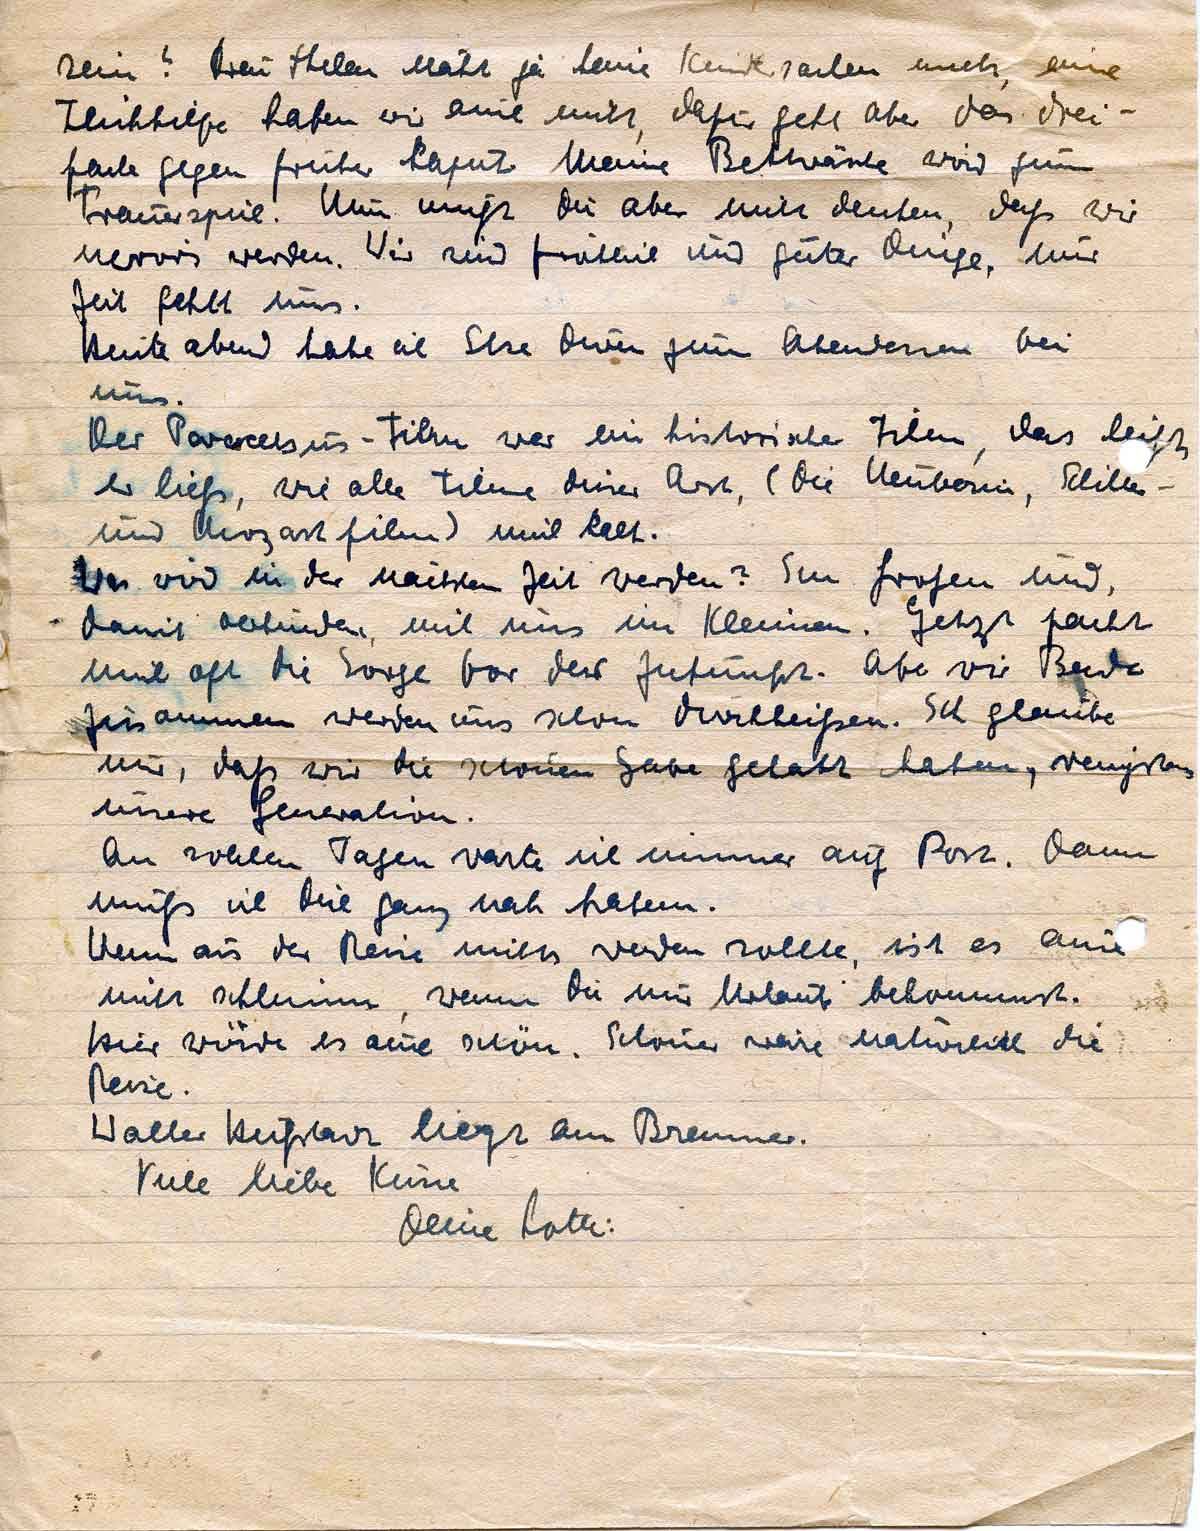 sein? Frau Thelen näht ja keine Kindersachen mehr, eine
Flickhilfe haben wir auch nicht, dafür geht aber das drei-
fache gegen früher kaput. Meine Bettwäsche wird zum
Trauerspiel. Nun mußt Du aber nicht denken, daß wir
nervös werden. Wir sind fröhlich und guter Dinge, nur
Zeit fehlt uns.
Heute abend habe ich Else zum Abendessen bei
uns.
Der Paracelsus-Film war ein historischer Film, das heißt
er ließ, wie alle Filme dieser Art, (Die Neuberin, Schiller-
und Mozartfilm) mich kalt.
Was wird in der nächsten Zeit werden? Im Großen und,
damit verbunden, mit uns im Kleinen. Jetzt packt
mich oft die Sorge vor der Zukunft. Aber wir Beide
zusammen werden uns schon durchbeißen. Ich glaube
nur, daß wir die schönen Jahre gehabt haben, wenigstens
unsere Generation.
An solchen Tagen warte ich immer auf Post. Dann
muß ich Dich ganz nah haben.
Wenn aus der Reise nichts werden sollte, ist es auch
nicht schlimm, wenn Du nur Urlaub bekommst.
Hier würde es auch schön. Schöner wäre natürlich die
Reise.
Walter liegt am Brenner.
Viele liebe Küsse
Deine Lotte.